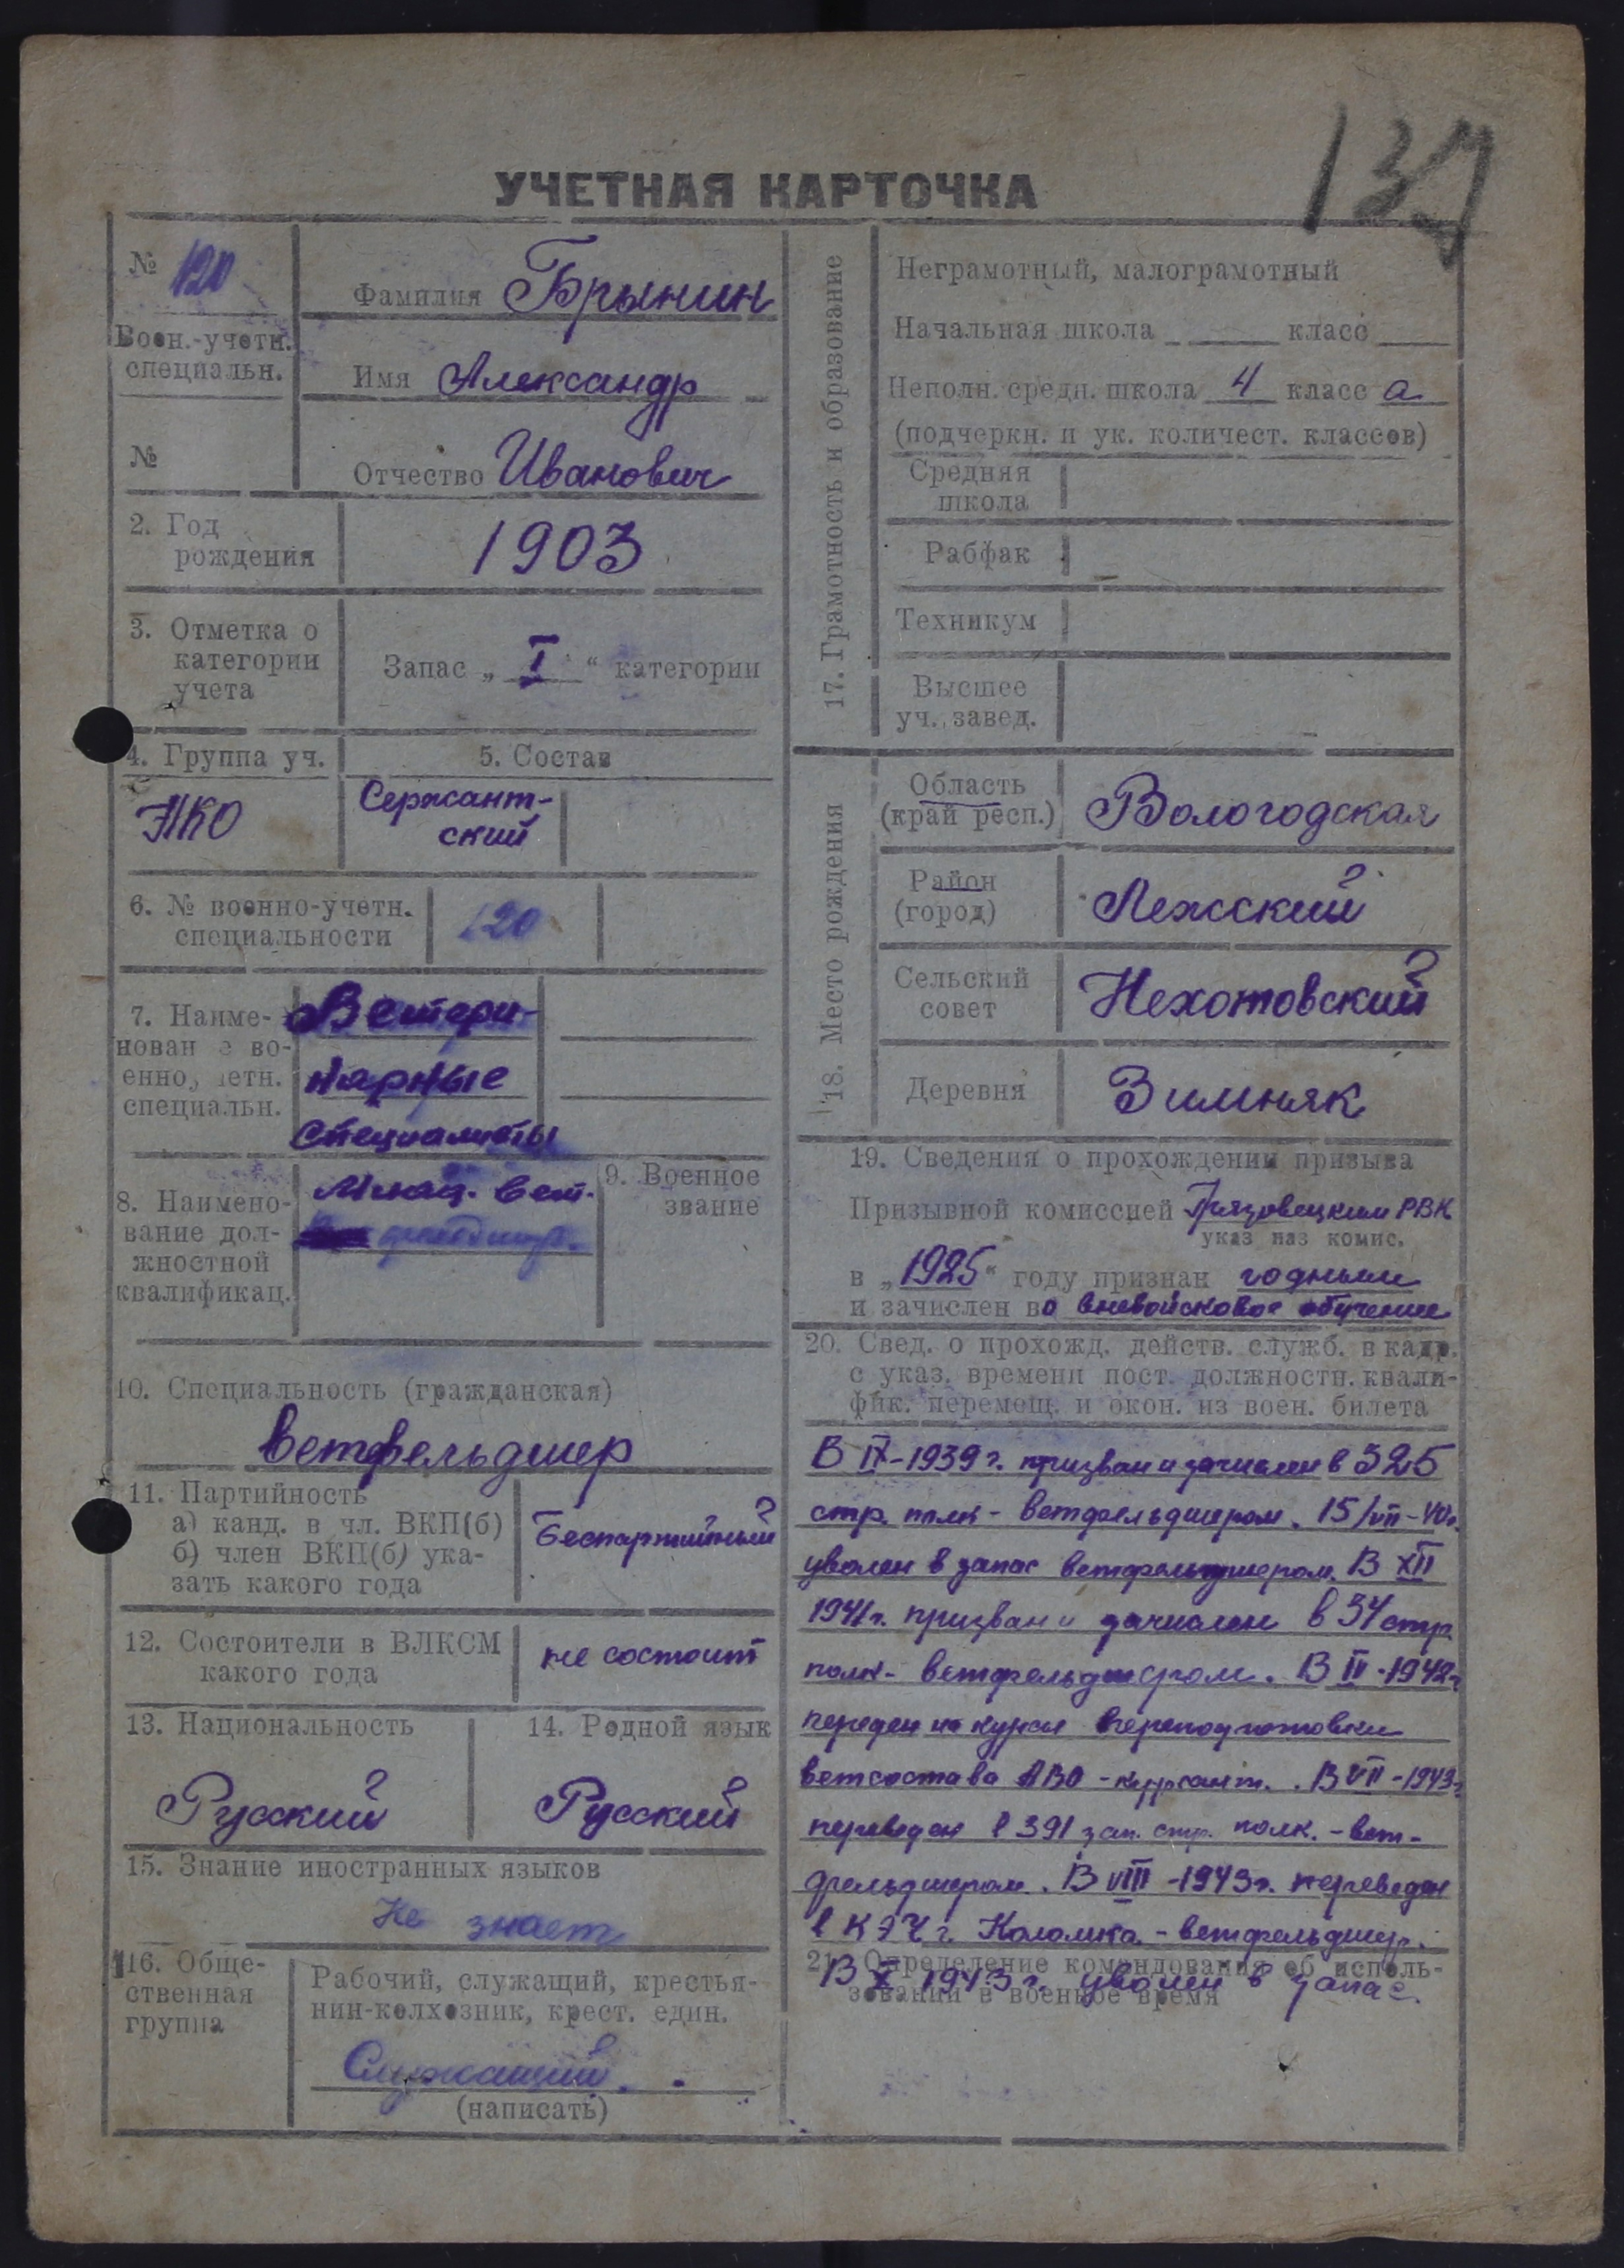 137
УЧЕТНАЯ КАРТОЧКА
№ 120
Воен.-учетн.
специальн.
№
Фамилия Брынин
Имя Александр
Отчество Иванович
2. Год
рождения
1903
3. Отметка о
категории
учета
Запас „ I “ категории
4. Группа уч.
5. Состав
НКО
Сержант-
ский
6. № военно-учетн.
специальности
120
7. Наиме-
нован е во-
енно, четн.
специальн.
Ветери-
нарные
специалисты
8. Наимено-
вание дол-
жностной
квалификац.
Млад. вет.
фельдшер.
9. Военное
звание
10. Специальность (гражданская)
Ветфельдшер
11. Партийность
а) канд. в чл. ВКП(б)
б) член ВКП(б) ука-
зать какого года
Беспартийный
12. Состоители в ВЛКСМ
какого года
не состоит
13. Национальность
Русский
14. Родной язык
Русский
15. Знание иностранных языков
Не знает
16. Обще-
ственная
группа
Рабочий, служащий, крестья-
нин-колхозник, крест. един.
Служащий.
(написать)
17. Грамотность и образование
Неграмотный, малограмотный
Начальная школа класс
Неполн. средн. школа 4 класс а
(подчеркн. и ук. количест. классов)
Средняя
школа
Рабфак
Техникум
Высшее
уч. завед.
18. Место рождения
Область
(край респ.)
Вологодская
Район
(город)
Лежский
Сельский
совет
Нехотовский
Деревня
Зимняк
19. Сведения о прохождении призыва
Призывной комиссией Грязовецким РВК
указ наз комис.
в „1925“ году признан годным
и зачислен во вневойсковое обучение
20. Свед. о прохожд. действ. служб. в кадр.
с указ. времени пост. должностн. квали-
фик. перемещ. и окон. из воен. билета
В IX-1939 г. призван и зачислен в 325
стр. полк - ветфельдшером. 15/VII-40г.
уволен в запас ветфельдшером. В XII
1941 г. призван и зачислен в 34 стр.
полк - ветфельдшером. В IV-1942г
на курсы переподготовки
ветсостава АВО - курсант. В VII-1943г
переведен в 391 зап. стр. полк. - вет-
фельдшером. В VIII-1943г. переведен
в КЭЧ г. Коломка - ветфельдшер.
21. Определение командования об исполь-
зовании в военное время
В X 1943 г. уволен в запас.